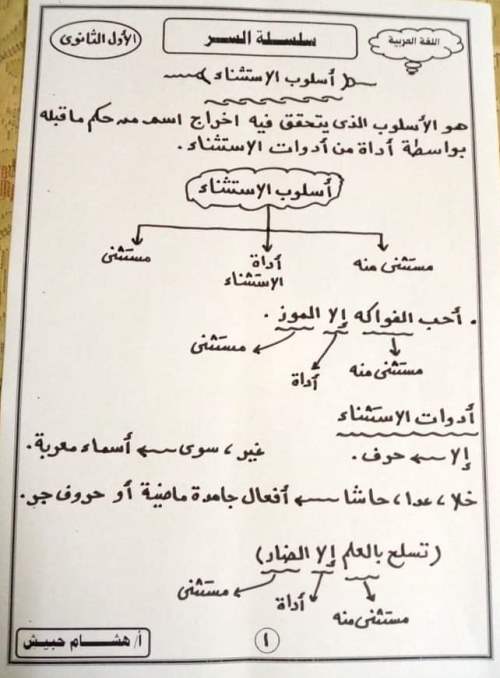 اللغة العربية
سلسلة السر
الأول الثانوى
(أسلوب الإستثناء)
هو الأسلوب الذى يتحقق فيه اخراج اسم من حكم ما قبله
بواسطة أداة من أدوات الإستثناء.
أسلوب الإستثناء
مستثنى منه
أداة الإستثناء
مستثنى
. أحب الفواكه إلا الموز .
مستثنى منه
أداة
مستثنى
أدوات الإستثناء
إلا ← حرف.
غير، سوى ← أسماء معربة.
خلا، عدا، حاشا ← أفعال جامدة ماضية أو حروف جر.
(تسلح بالعلم إلا الضار)
مستثنى منه
أداة
مستثنى
١
أ/ هشام حبيش